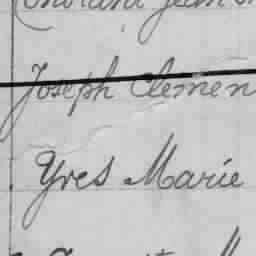 Jean
Joseph Clemen
Yves Marie